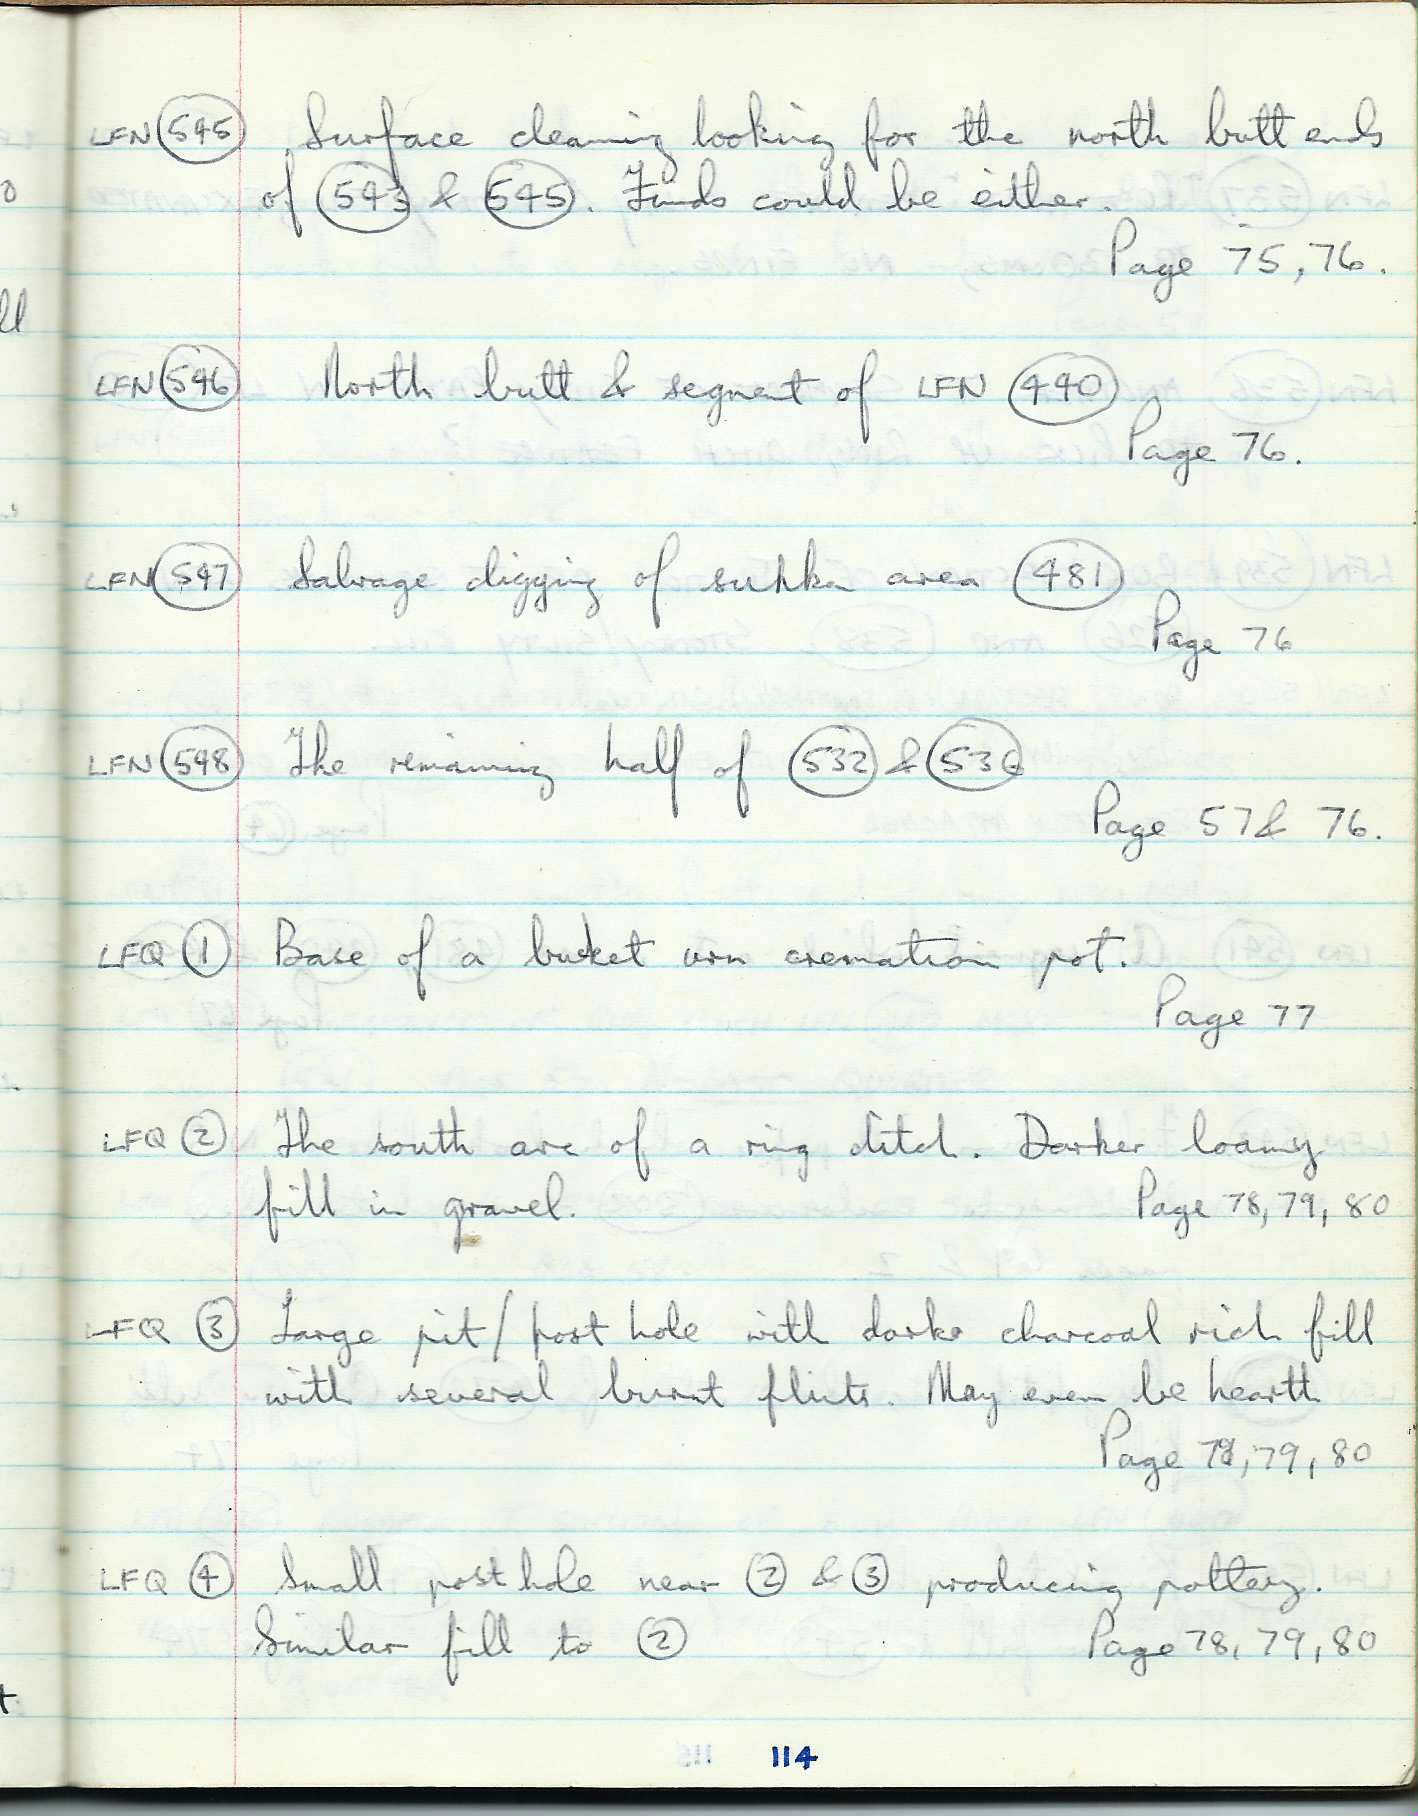 LFN 545 Surface cleaning looking for the north butt ends
of 543 & 545. Finds could be either.
Page 75, 76.
LFN 546 North butt & segment of LFN 440
Page 76.
LFN 547 Salvage digging of sukka area 481
Page 76
LFN 548 The remaining half of 532 & 536
Page 57 & 76.
LFQ 1 Base of a bucket urn cremation pot.
Page 77
LFQ 2 The south arc of a ring ditch. Darker loamy
fill in gravel. Page 78, 79, 80
LFQ 3 Large pit/post hole with darker charcoal rich fill
with several burnt flints. May even be hearth
Page 78, 79, 80
LFQ 4 Small post hole near 2 & 3 producing pottery.
Similar fill to 2 Page 78, 79, 80
114